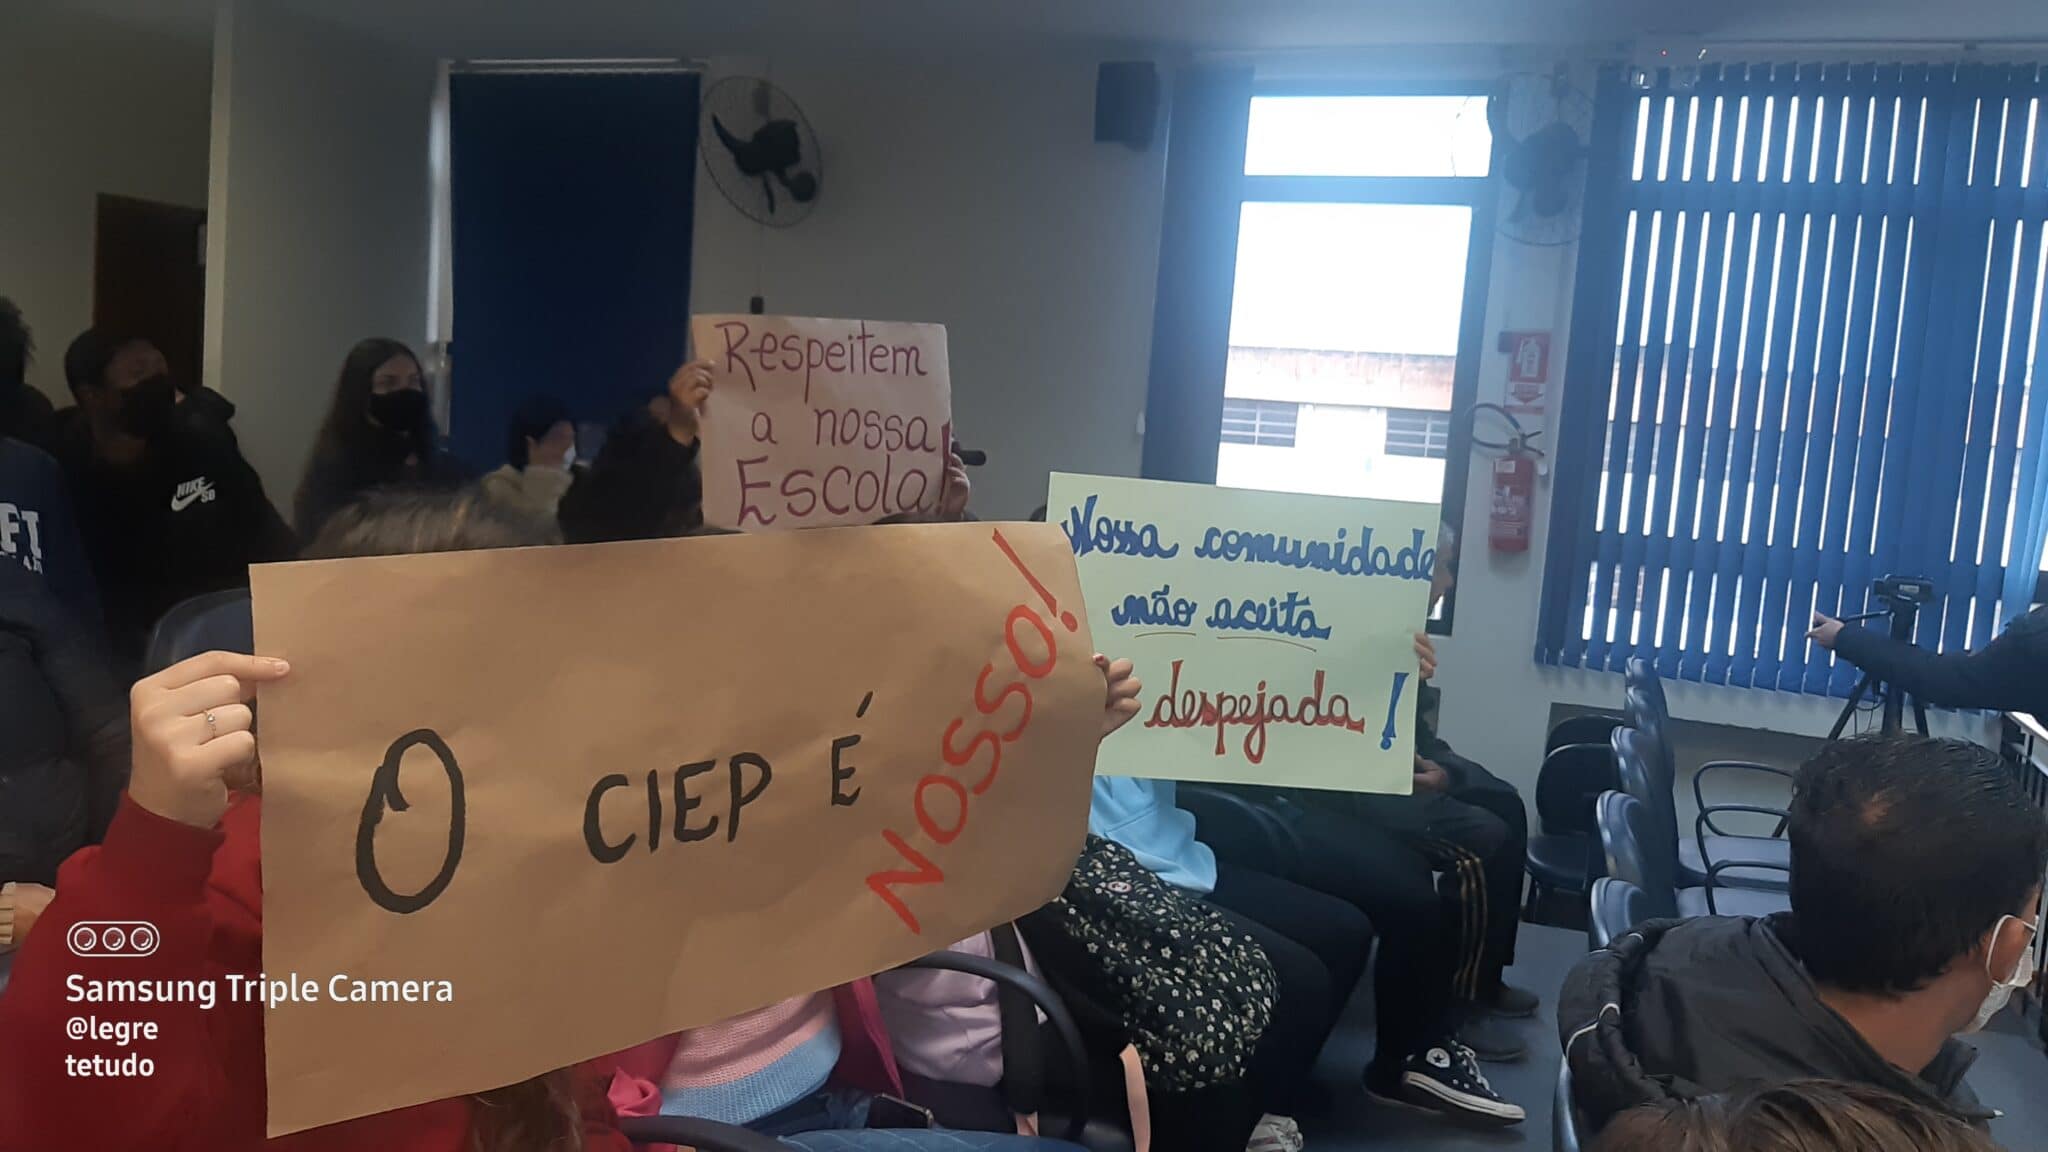 Respeitem
a nossa
Escola!
Nossa comunidade
não aceita
despejada!
O CIEP É NOSSO!
NIKE
SB
Samsung Triple Camera
@legre
tetudo